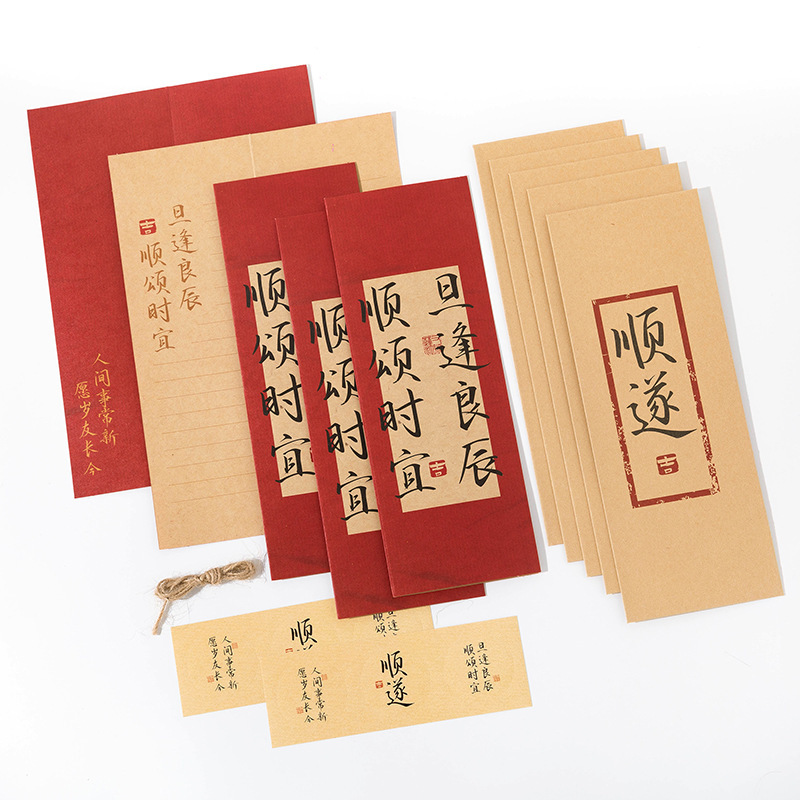 人间事常新
愿岁友长今
旦逢良辰
顺颂时宜
吉
顺颂时宜
顺颂时宜
旦逢良辰
顺颂时宜
吉
顺遂
吉
旦逢
顺颂
顺
人间事常新
愿岁友长今
旦逢良辰
顺颂时宜
顺遂
人间事常新
愿岁友长今